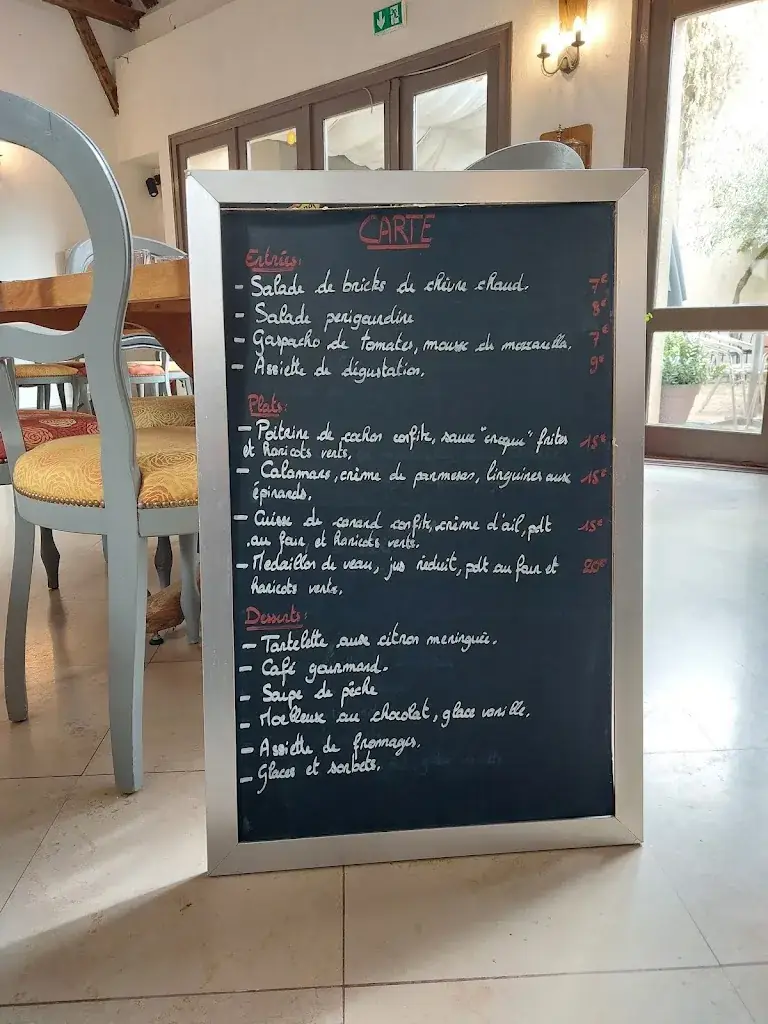 CARTE
Entrées:
- Salade de bricks de chèvre chaud. 7€
- Salade perigourdine 8€
- Gaspacho de tomates, mousse de mozzarella. 7€
- Assiette de dégustation. 9€
Plats:
- Poitrine de cochon confite, sauce "croque" frites 15€
et haricots verts.
- Calamars, crème de parmesan, linguines aux 15€
épinards.
- Cuisse de canard confite, crème d'ail, pdt 15€
au four et haricots verts.
- Medaillon de veau, jus réduit, pdt au four et 20€
haricots verts.
Desserts:
- Tartelette aux citron meringuée.
- Café gourmand.
- Soupe de pêche
- Moelleux au chocolat, glace vanille.
- Assiette de fromages.
- Glaces et sorbets.